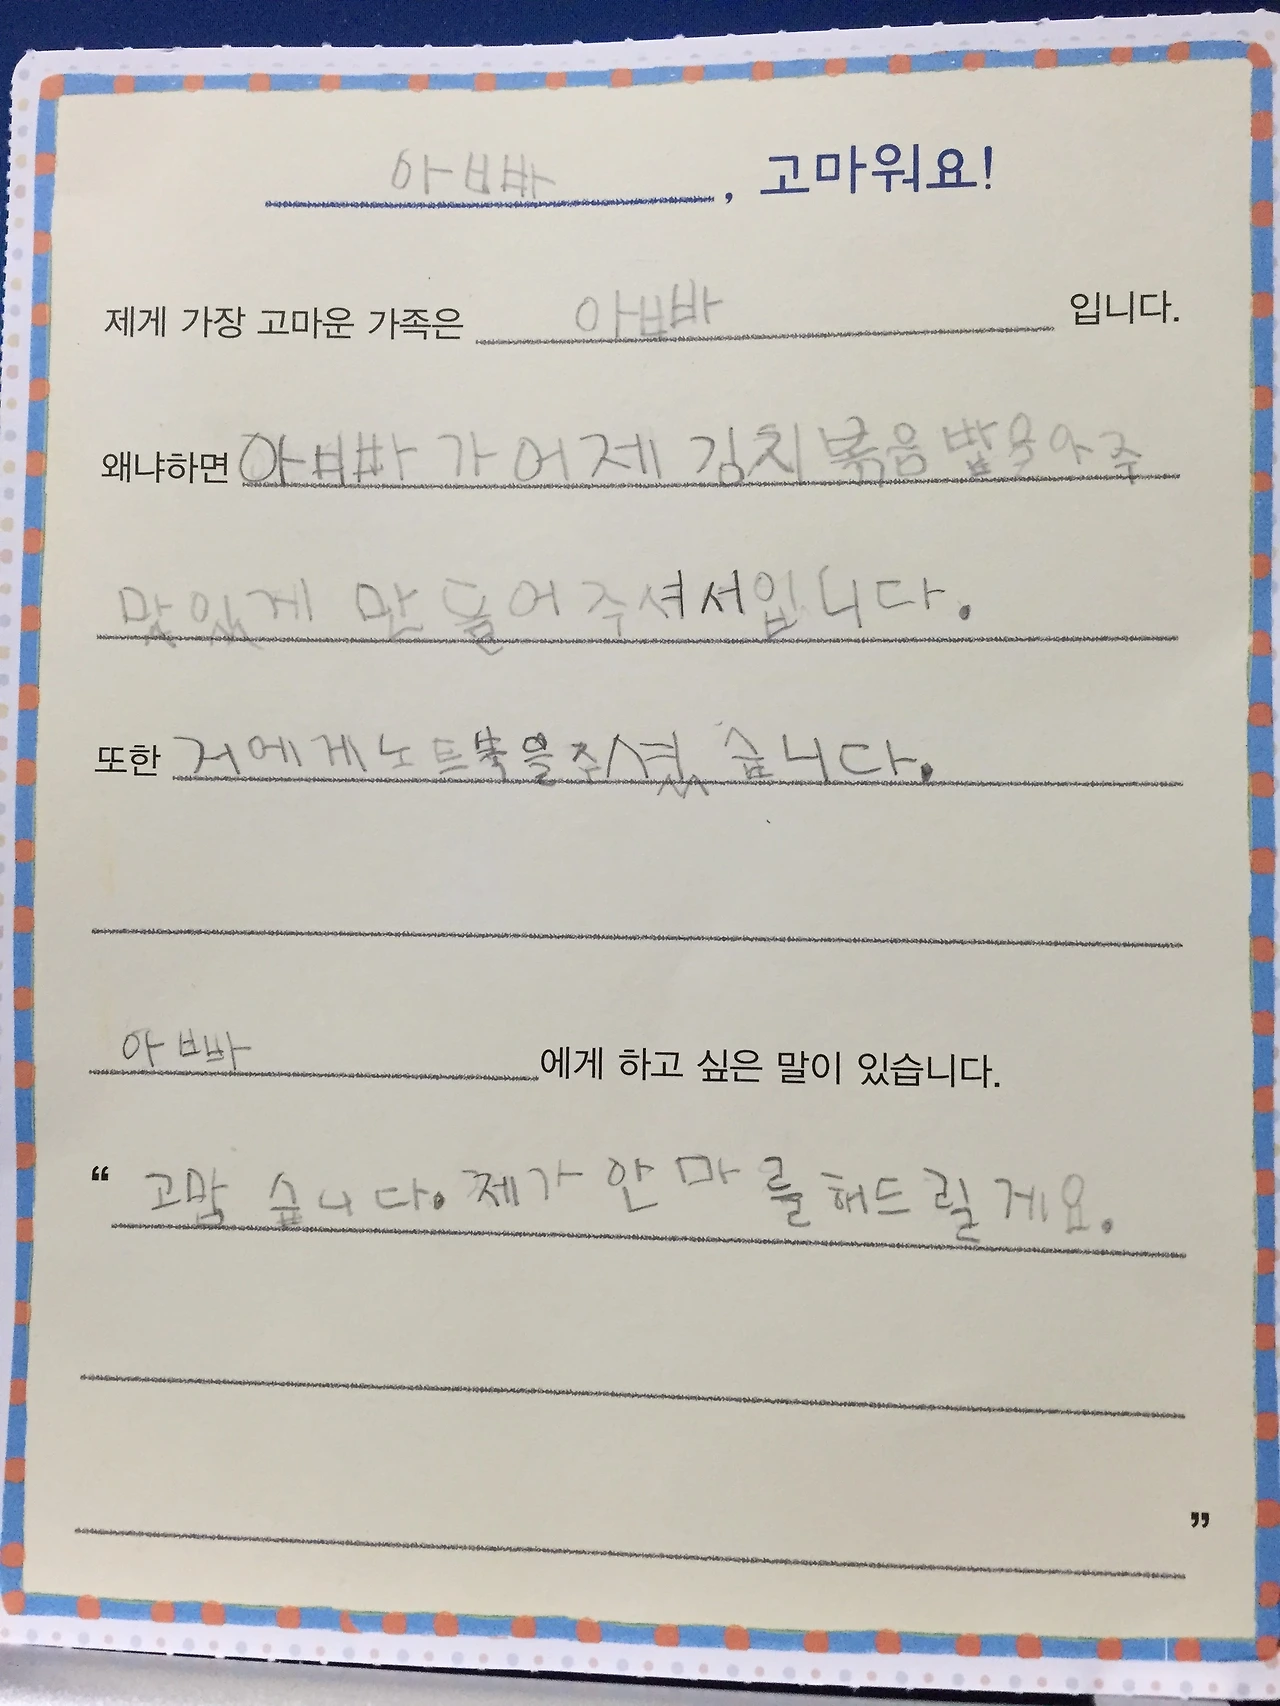 아빠, 고마워요!
제게 가장 고마운 가족은 아빠 입니다.
왜냐하면 아빠가 어제 김치볶음밥을 아주
맛있게 만들어주셔서입니다.
또한 저에게 노트북을 주셨습니다.
아빠에게 하고 싶은 말이 있습니다.
“ 고맙습니다. 제가 안마를 해드릴게요.
”